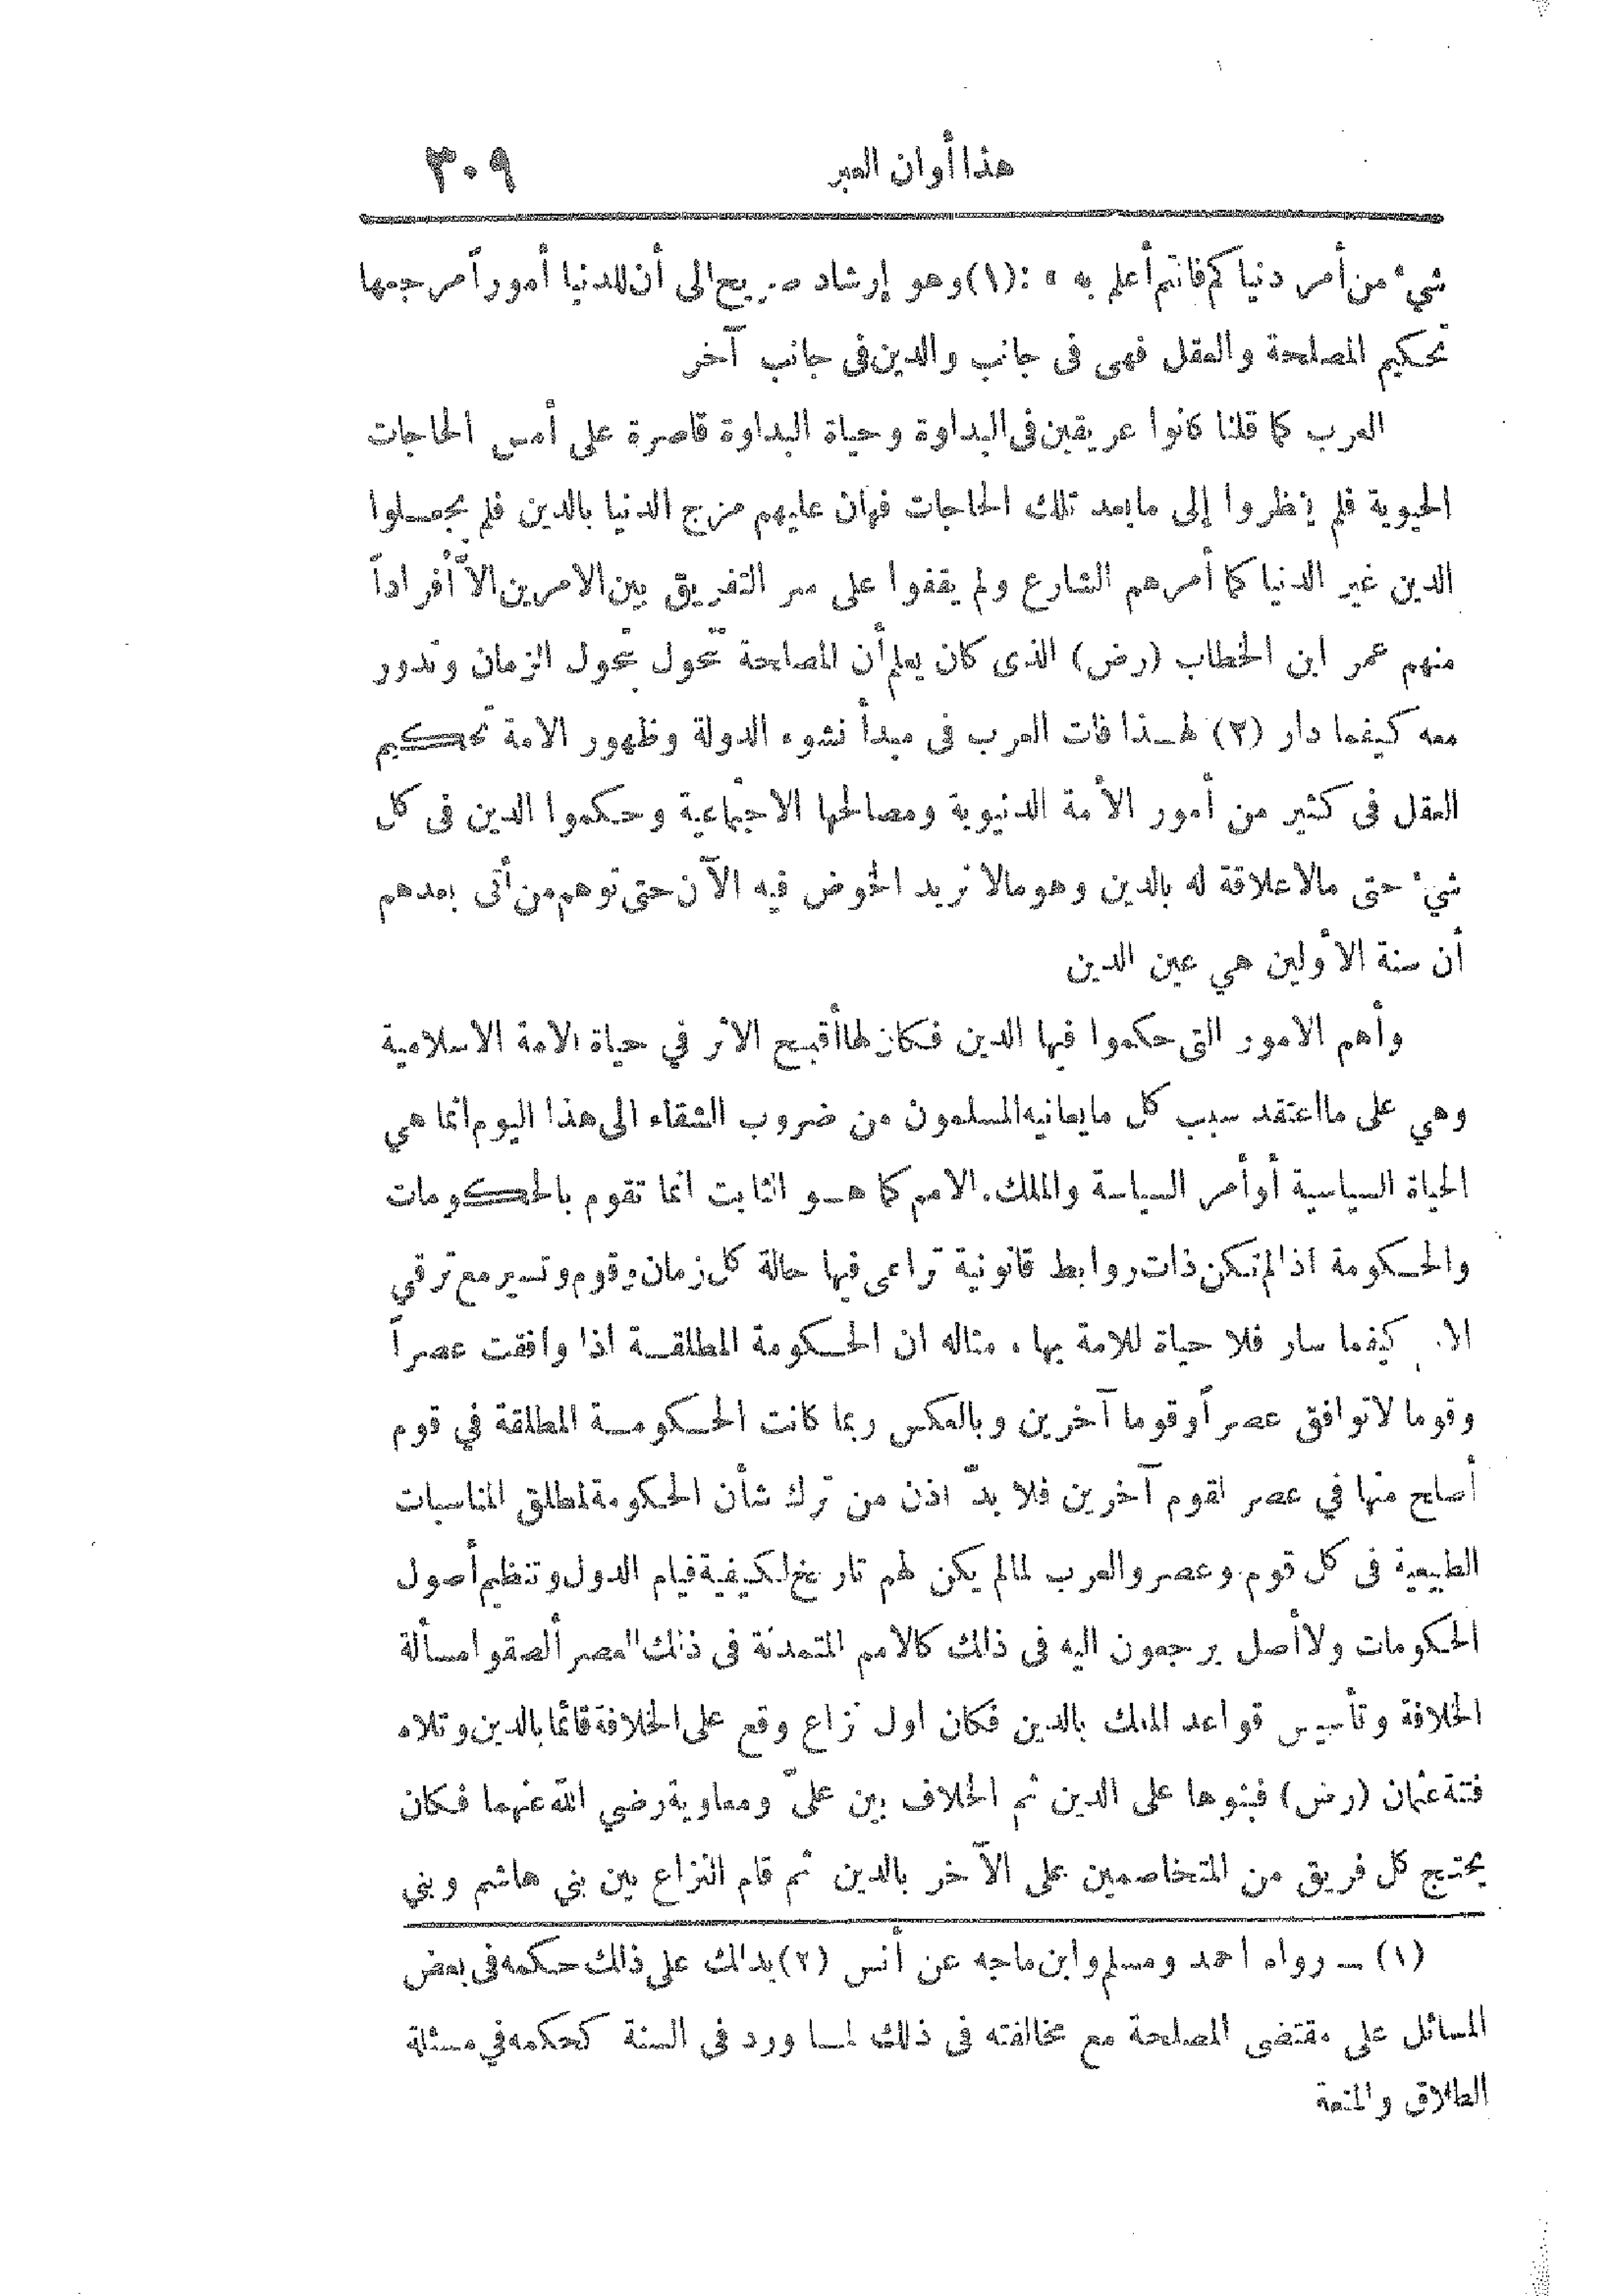 هذا أوان العبر ٣٠٩
شيء من أمر دنياكم فانتم أعلم به » :(١) وهو إرشاد صريح الى أن للدنيا أموراً مرجعها
تحكيم المصلحة والعقل فهى فى جانب والدين فى جانب آخر
العرب كما قلنا كانوا عريقين فى البداوة وحياة البداوة قاصرة على أمس الحاجات
الحيوية فلم ينظروا إلى مابعد تلك الحاجات فهان عليهم مزج الدنيا بالدين فلم يجعلوا
الدين غير الدنيا كما أمرهم الشارع ولم يقفوا على سر التفريق بين الامرين الاّ أفراداً
منهم عمر ابن الخطاب (رض) الذى كان يعلم أن المصلحة تحول بتحول الزمان وتدور
معه كيفما دار (٢) لهذا فات العرب فى مبدأ نشوء الدولة وظهور الامة تحكيم
العقل فى كثير من أمور الأمة الدنيوية ومصالحها الاجتماعية وحكموا الدين فى كل
شيء حتى مالاعلاقة له بالدين وهو مالا نريد الخوض فيه الآن حتى توهم من أتى بعدهم
أن سنة الأولين هي عين الدين
وأهم الامور التى حكموا فيها الدين فكان لها أقبح الاثر في حياة الامة الاسلامية
وهي على ما اعتقد سبب كل مايعانيه المسلمون من ضروب الشقاء الى هذا اليوم انما هي
الحياة السياسية أو أمر السياسة والملك. الامم كما هو الثابت انما تقوم بالحكومات
والحكومة اذا لم تكن ذات روابط قانونية تراعى فيها حالة كل زمان وقوم وتسير مع ترقي
كيفما سار فلا حياة للامة بها . مثاله ان الحكومة المطلقة اذا وافقت عصراً
وقوما لاتوافق عصراً وقوما آخرين وبالعكس ربما كانت الحكومة المطلقة في قوم
أصلح منها في عصر لقوم آخرين فلا بدّ اذن من ترك شأن الحكومة لمطلق المناسبات
الطبيعية فى كل قوم وعصر والعرب لما لم يكن لهم تاريخ لكيفية قيام الدول وتنظيم أصول
الحكومات ولا أصل يرجعون اليه فى ذلك كالامم المتمدنة فى ذلك العصر ألصقوا مسألة
الخلافة وتأسيس قواعد الملك بالدين فكان اول نزاع وقع على الخلافة قائما بالدين وتلاه
فتنة عثمان (رض) فبنوها على الدين ثم الخلاف بين علىّ ومعاوية رضي الله عنهما فكان
يحتج كل فريق من المتخاصمين على الآخر بالدين ثم قام النزاع بين بني هاشم وبني
(١) ــ رواه احمد ومسلم وابن ماجه عن أنس (٢) يدلك على ذلك حكمه فى بعض
المسائل على مقتضى المصلحة مع مخالفته فى ذلك لما ورد فى السنة كحكمه في مسئلة
الطلاق والمتعة